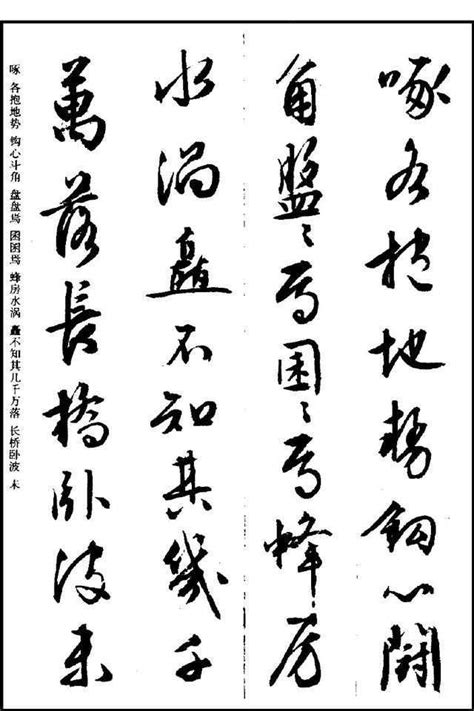 啄各抱地勢鈎心鬭
角盤〻焉囷〻焉蜂房
水渦矗不知其幾千
萬落長橋卧波未
啄 各抱地势 钩心斗角 盘盘焉 囷囷焉 蜂房水涡 矗不知其几千万落 长桥卧波 未